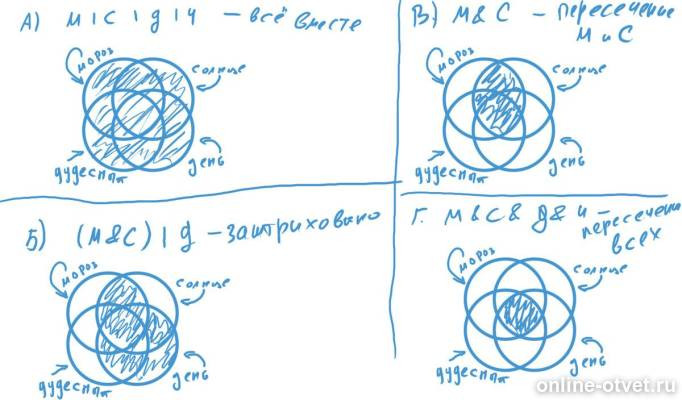 А) М | С | д | Ч – всё вместе
мороз
солнце
чудесный
день
В) М & С – пересечение
М и С
мороз
солнце
чудесный
день
Б) (М & С) | д – заштриховано
мороз
солнце
чудесный
день
Г. М & С & д & и – пересечени
всех
мороз
солнце
чудесный
день
online-otvet.ru